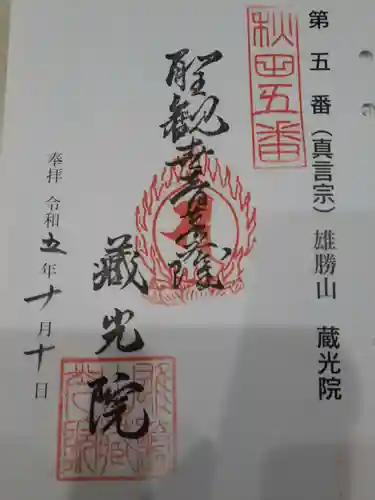 第五番(真言宗)雄勝山 蔵光院
秋田五番
聖観喜蔵院
藏光院
奉拝 令和五年十月十日